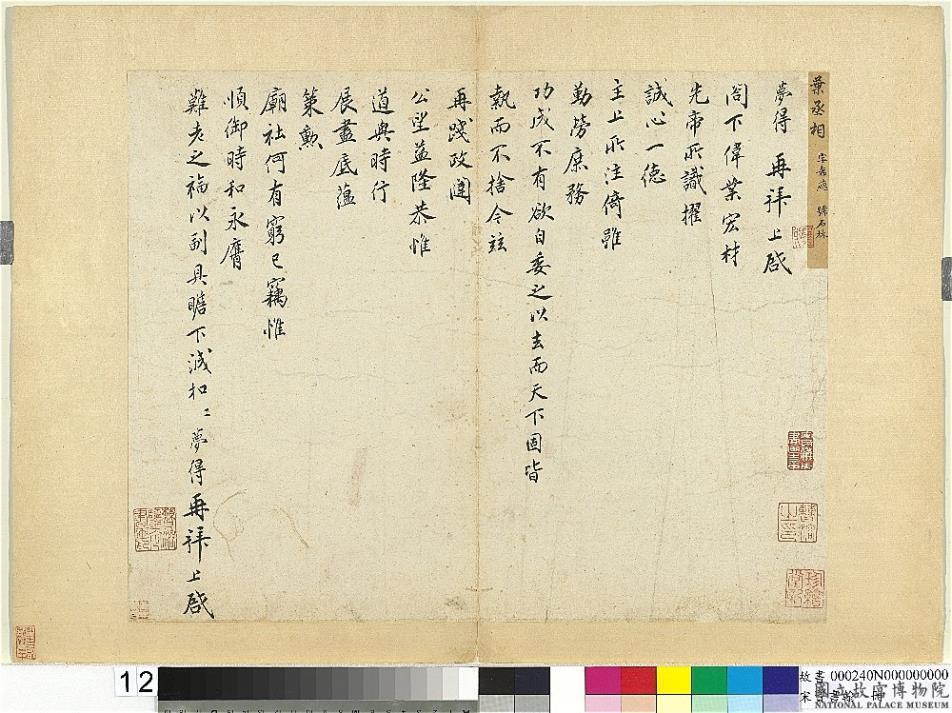 葉丞相 字少蘊 號石林
夢得 再拜上啟
閤下偉業宏材
先帝所識擢
誠心一德
主上所注倚雖
勤勞庶務
功成不有欲自委之以去而天下固皆
執而不捨令茲
再踐政闥
公望益隆恭惟
道與時行
展盡底蘊
策勳
廟社何有窮已竊惟
順御時和永膺
難老之福以副具瞻下誠扣〻夢得再拜上啟
12
故書000240N000000000
國立故宮博物院
NATIONAL PALACE MUSEUM